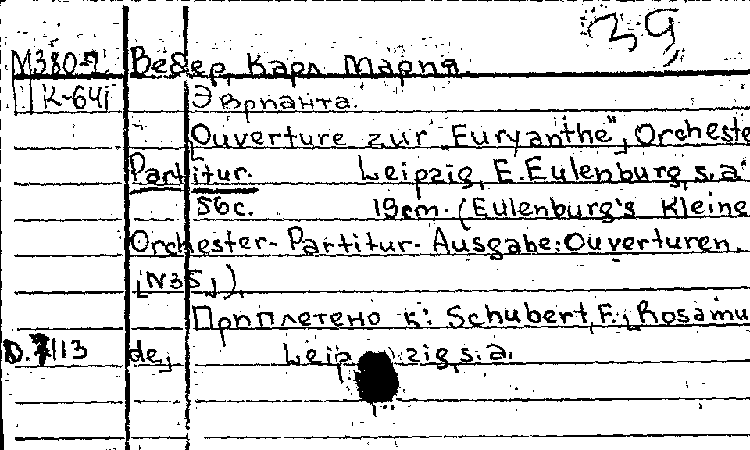 39
М380-7 Вебер, Карл Мария.
К-641 Эврианта.
Ouverture zur "Euryanthe", Orcheste
Partitur. Leipzig, E. Eulenburg, s.a.
56c. 19cm. (Eulenburg's Kleine
Orchester-Partitur-Ausgabe: Ouverturen.
[N35]).
Приплетено к: Schubert, F. [Rosamu
D.7113 de] Leipzig, s.a.